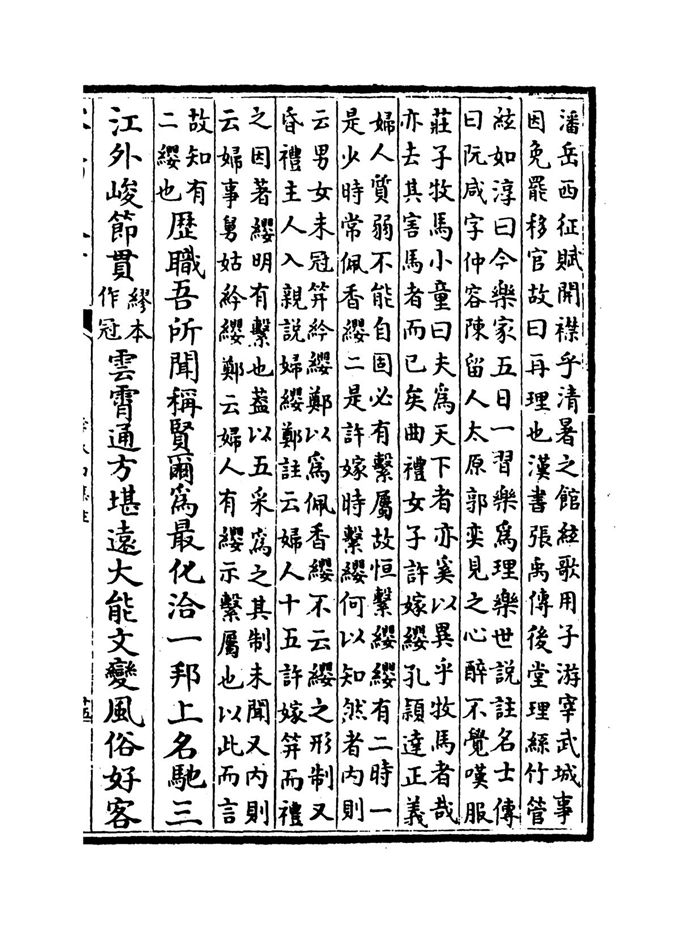 潘岳西征賦開襟乎清暑之館絃歌用子游宰武城事
因免罷移官故曰再理也漢書張禹傳後堂理絲竹管
絃如淳曰今樂家五日一習樂為理樂世說註名士傳
曰阮咸字仲容陳留人太原郭奕見之心醉不覺嘆服
莊子牧馬小童曰夫為天下者亦奚以異乎牧馬者哉
亦去其害馬者而已矣曲禮女子許嫁纓孔穎達正義
婦人質弱不能自固必有繫屬故恒繫纓纓有二時一
是少時常佩香纓二是許嫁時繫纓何以知然者内則
云男女未冠笄紟纓鄭以為佩香纓不云纓之形制又
昏禮主人入親説婦纓鄭註云婦人十五許嫁笄而禮
之因著纓明有繫也葢以五采為之其制未聞又内則
云婦事舅姑紟纓鄭云婦人有纓示繫屬也以此而言
故知有
二纓也
歴職吾所聞稱賢爾為最化洽一邦上名馳三
江外峻節貫
繆本
作冠
雲霄通方堪遠大能文變風俗好客